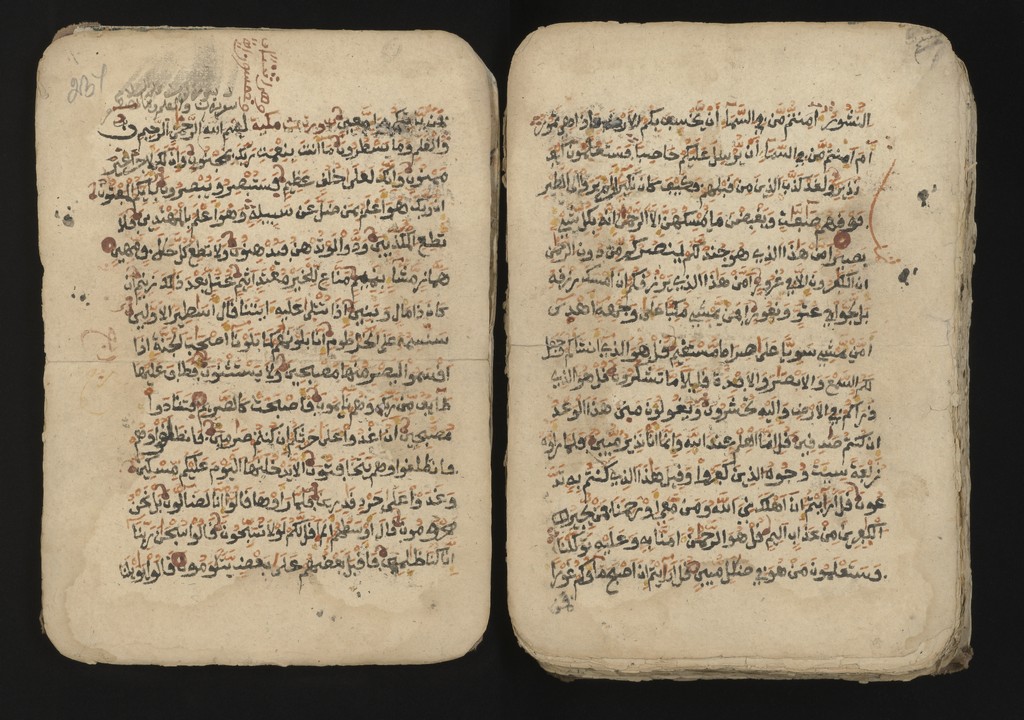 النشور أمنتم من في السماء أن يخسف بكم الأرض فإذا هي تمور
أم أمنتم من في السماء أن يرسل عليكم حاصبا فستعلمون كيف
نذير ولقد كذب الذين من قبلهم فكيف كان نكير أولم يروا إلى الطير
فوقهم صفت ويقبضن ما يمسكهن إلا الرحمن إنه بكل شيء
بصير أمن هذا الذي هو جند لكم ينصركم من دون الرحمن
إن الكفرون إلا في غرور أمن هذا الذي يرزقكم إن أمسك رزقه
بل لجوا في عتو ونفور أفمن يمشي مكبا على وجهه أهدى
أمن يمشي سويا على صراط مستقيم قل هو الذي أنشأكم وجعل
لكم السمع والابصر والافدة قليلا ما تشكرون قل هو الذي
ذرأكم في الارض وإليه تحشرون ويقولون متى هذا الوعد
إن كنتم صدقين قل إنما العلم عند الله وإنما أنا نذير مبين فلما رأوه
زلفة سيئت وجوه الذين كفروا وقيل هذا الذي كنتم به تد
عون قل أرايتم إن أهلكني الله ومن معي أو رحمنا فمن يجير
الكفرين من عذاب أليم قل هو الرحمن ءامنا به وعليه توكلنا
فستعلمون من هو في ضلل مبين قل أرايتم إن أصبح ماؤكم غورا
فمن
فمن يأتيكم بماء معين سورة ن مكية بسم الله الرحمن الرحيم ن
والقلم وما يسطرون ما أنت بنعمة ربك بمجنون وإن لك لأجرا غير
ممنون وإنك لعلى خلق عظيم فستبصر ويبصرون بأييكم المفتون
إن ربك هو أعلم بمن ضل عن سبيله وهو أعلم بالمهتدين فلا
تطع المكذبين ودوا لو تدهن فيدهنون ولا تطع كل حلاف مهين
هماز مشاء بنميم مناع للخير معتد أثيم عتل بعد ذلك زنيم أن
كان ذا مال وبنين إذا تتلى عليه ءايتنا قال أسطير الاولين
سنسمه على الخرطوم إنا بلونهم كما بلونا أصحب الجنة إذ
أقسموا ليصرمنها مصبحين ولا يستثنون فطاف عليها
طايف من ربك وهم نايمون فأصبحت كالصريم فتنادوا
مصبحين أن اغدوا على حرثكم إن كنتم صرمين فانطلقوا وهم
فانطلقوا وهم يتخفتون ألا يدخلنها اليوم عليكم مسكين
وغدوا على حرد قدرين فلما رأوها قالوا إنا لضالون بل نحن
محرومون قال أوسطهم ألم أقل لكم لولا تسبحون قالوا سبحن ربنا
إنا كنا ظلمين فأقبل بعضهم على بعض يتلومون قالوا يويلنا